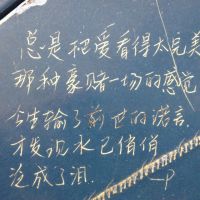 总是把爱看得太完美
那种豪赌一场的感觉
今生输了前世的诺言
才发现水已悄悄
泛成了泪.